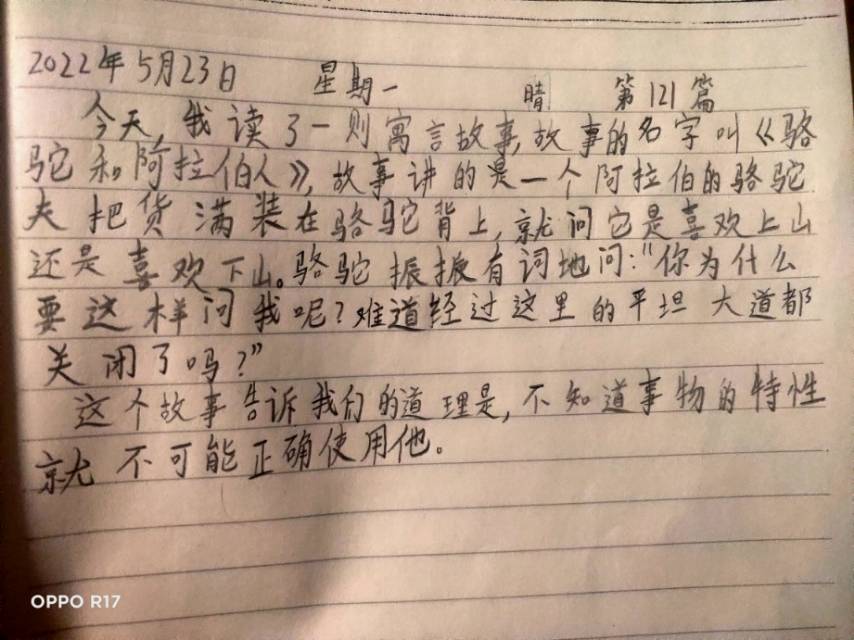 2022年5月23日 星期一 晴 第121篇
今天,我读了一则寓言故事,故事的名字叫《骆
驼和阿拉伯人》,故事讲的是一个阿拉伯的骆驼
夫把货满装在骆驼背上,就问它是喜欢上山
还是喜欢下山。骆驼振振有词地问:“你为什么
要这样问我呢?难道经过这里的平坦大道都
关闭了吗?”
这个故事告诉我们的道理是,不知道事物的特性
就不可能正确使用他。
OPPO R17